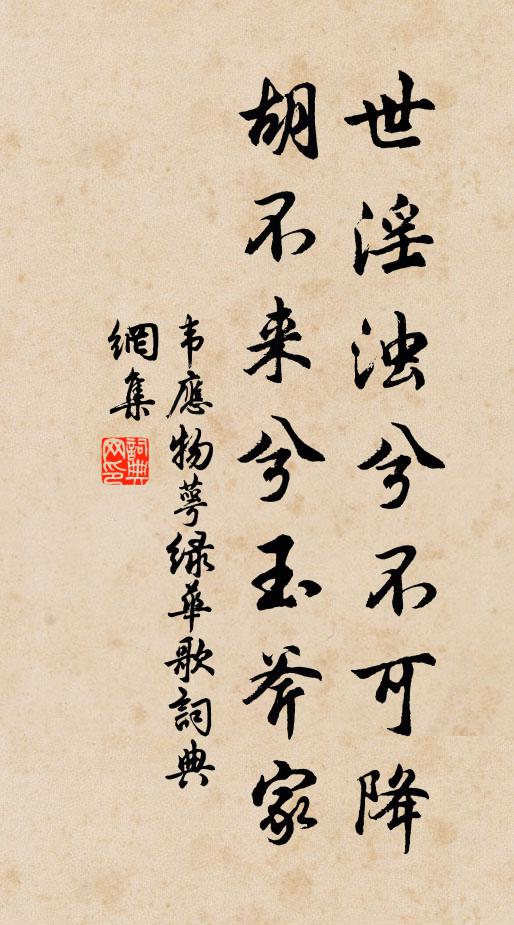 世淫浊兮不可降
胡不来兮玉斧家
韦應物萼緑華歌詞典
網集
詞典网印